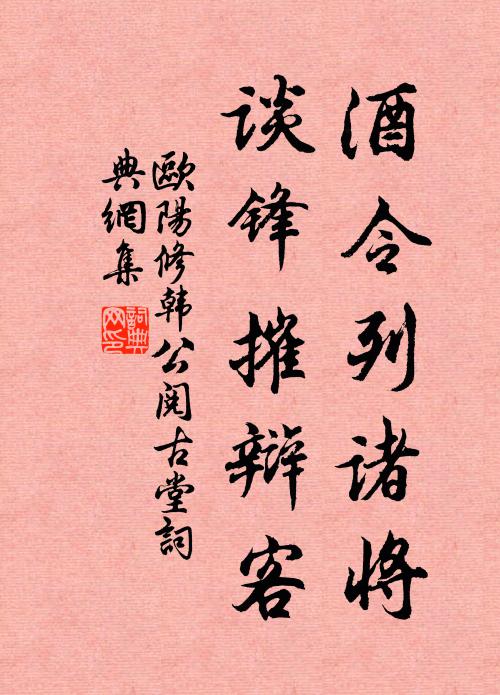 酒令列诸将
谈锋摧辩客
歐陽修韩公阅古堂詞
典網集
詞典网印